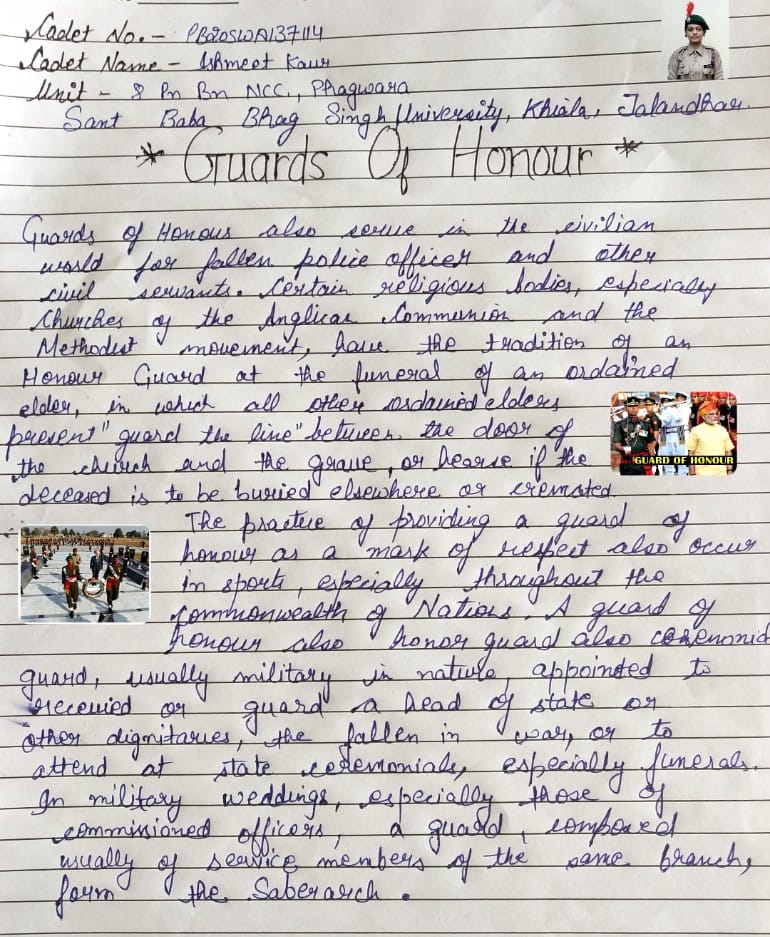 Cadet No. - PB20SWA137114
Cadet Name - Ishmeet Kaur
Unit - 8 Pn Bn NCC., Phagwara
Sant Baba Bhag Singh University, Khiala, Jalandhar.
* Guards Of Honour *
Guards of Honour also serve in the civilian
world for fallen police officer and other
civil servants. Certain religious bodies, especially
Churches of the Anglican Communion and the
Methodist movement, have the tradition of an
Honour Guard at the funeral of an ordained
elder, in which all other ordained elders
present "guard the line" between the door of
the church and the grave, or hearse if the
GUARD OF HONOUR
deceased is to be buried elsewhere or cremated.
The practice of providing a guard of
honour as a mark of respect also occur
in sports, especially throughout the
Commonwealth of Nations. A guard of
honour also honor guard also ceremonid
guard, usually military in nature, appointed to
received or guard a head of state or
other dignitaries, the fallen in war, or to
attend at state ceremonials, especially funerals.
In military weddings, especially those of
commissioned officers, a guard, composed
usually of service members of the same branch,
form the Saberarch.